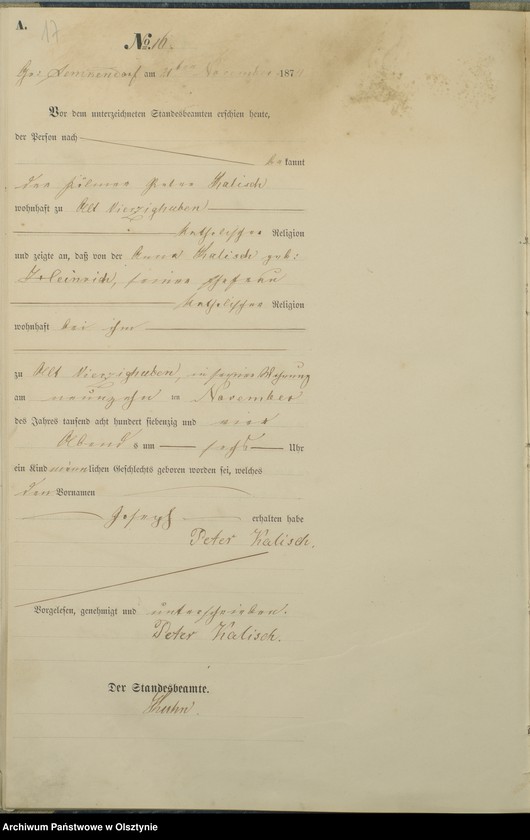 A.
17
No. 16.
am November 187
Vor dem unterzeichneten Standesbeamten erschien heute,
der Person nach
be kannt
der Peter Kalisch
wohnhaft zu Alt Vierzighuben
katholischer Religion
und zeigte an, daß von der Anna Kalisch geb:
Heinrich, seiner Ehefrau
katholischer Religion
wohnhaft bei ihm
zu Alt Vierzighuben, in seiner Wohnung
am neunzehn ten November
des Jahres tausend acht hundert siebenzig und vier
Abends um sechs Uhr
ein Kind männlichen Geschlechts geboren worden sei, welches
den Vornamen
Joseph erhalten habe
Peter Kalisch.
Vorgelesen, genehmigt und unterschrieben.
Peter Kalisch.
Der Standesbeamte.
Archiwum Państwowe w Olsztynie